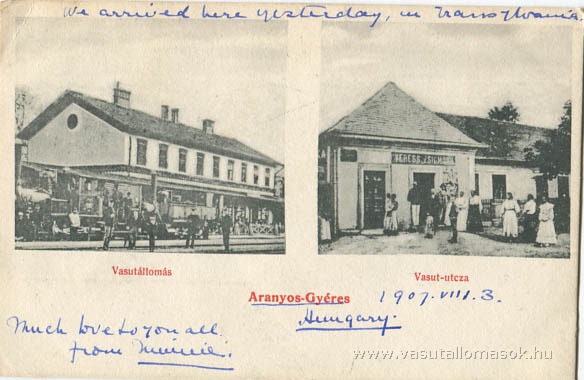 We arrived here yesterday, in Transylvania.
VERESS ZSIGMOND
Vasutállomás
Vasut-utcza
Aranyos-Gyéres 1907.VIII.3.
Hungary.
Much love to you all
from Minnie.
www.vasutallomasok.hu